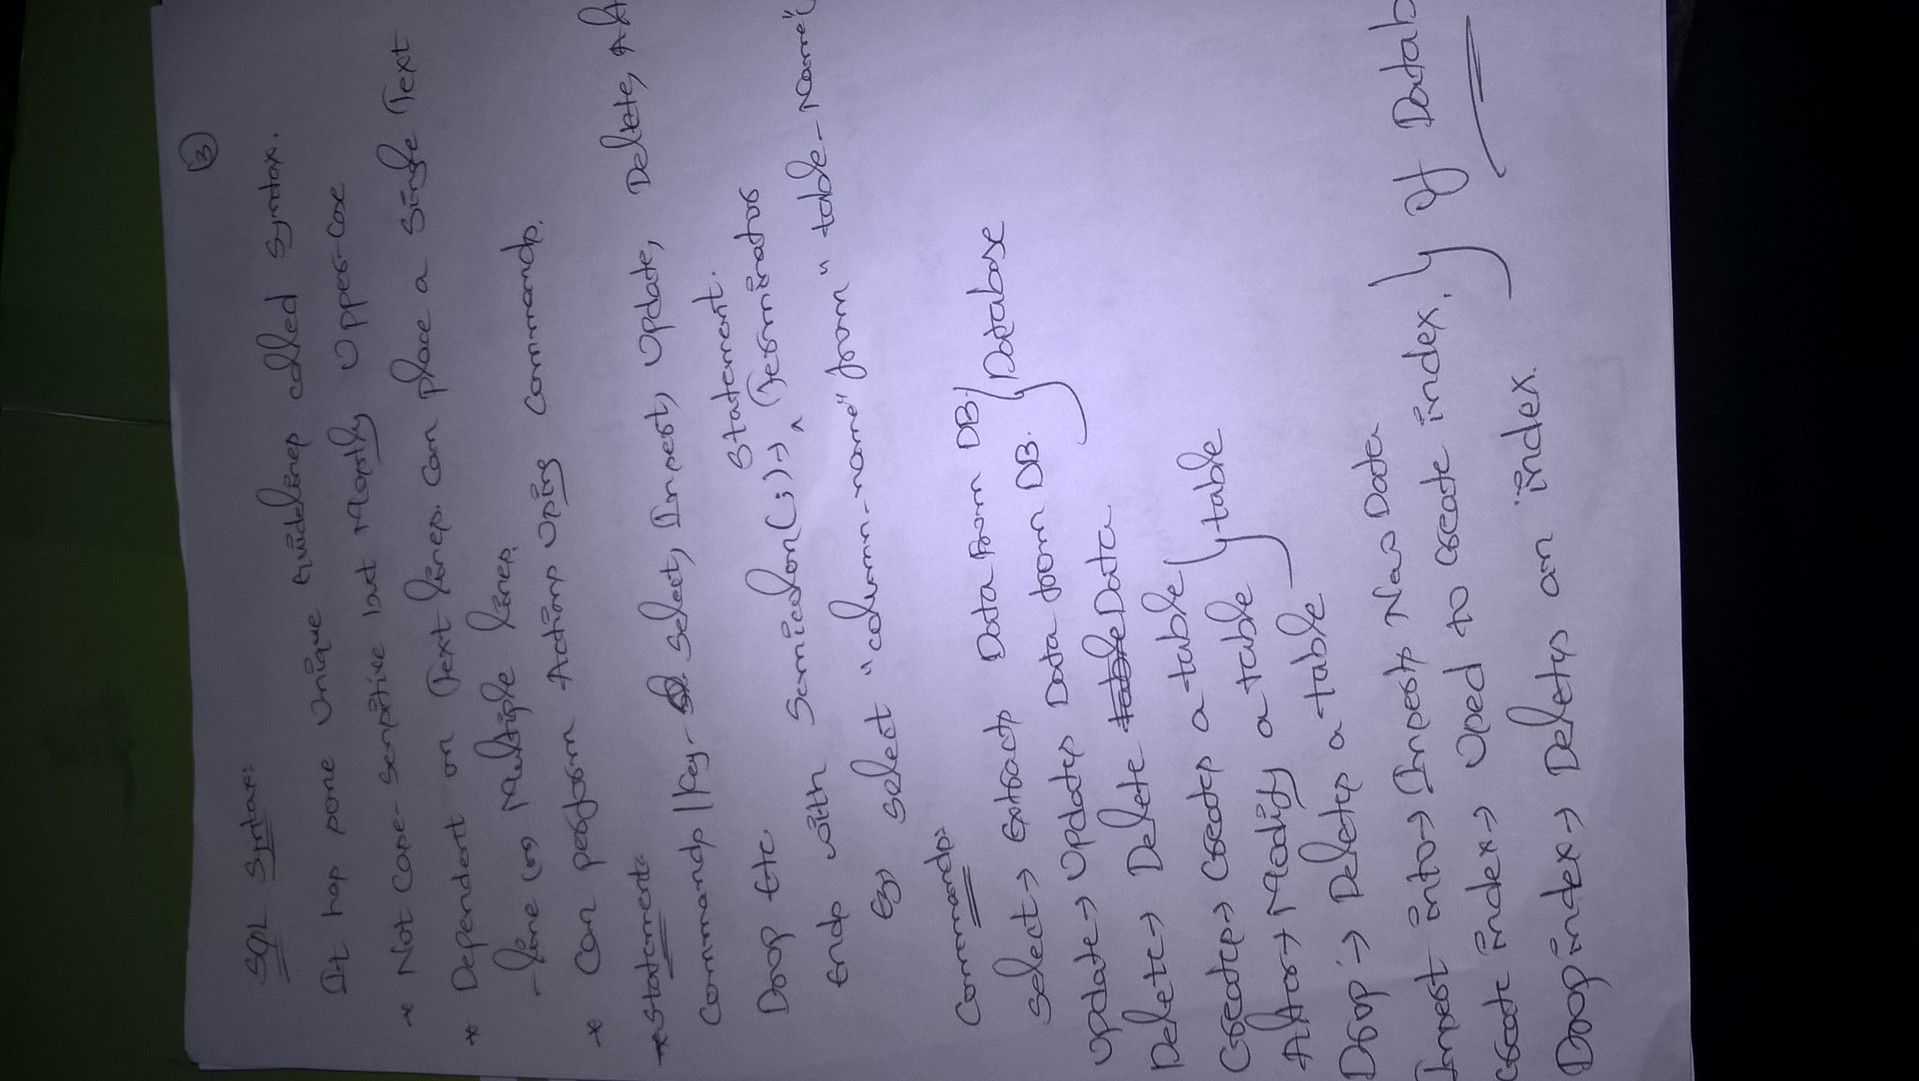 ③
SQL Syntax:
It has some unique Guidelines called Syntax.
* Not Case-Sensitive but Mostly Upper-Case
* Dependent on Text lines. Can place a Single Text
-line (or) Multiple lines.
* Can perform Actions Using Commands.
* Statement:
Commands / Key- Select, Insert, Update, Delete,
Drop Etc
Ends with Semicolon (;) → Statement Terminator
Eg) Select "column-name" from "table-Name"
Commands:
Select → Extracts Data from DB.
Update → Updates Data from DB. } Database
Delete → Delete table Data
Creates → Creates a table
Alter → Modify a table } table
Drop → Deletes a table
Insert into → Inserts New Data
Create index → Used to create index. } Of Datab
Drop index → Deletes an index.